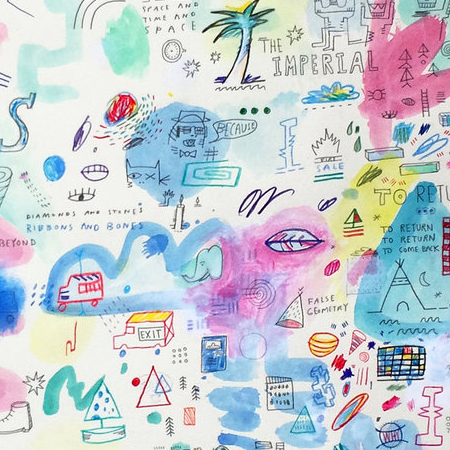 SPACE AND
TIME AND
SPACE
THE
IMPERIAL
S
BECAUSE
SALE
TO RETU
DIAMONDS AND STONES
RIBBONS AND BONES
BEYOND
TO RETURN
TO RETURN
TO COME BACK
FALSE
GEOMETRY
EXIT
WHY